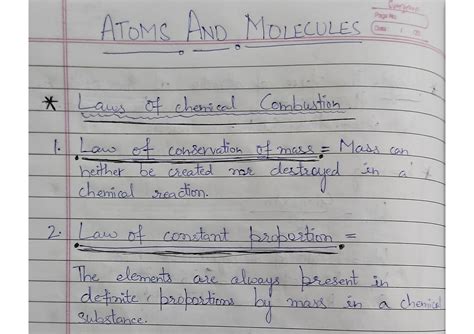 ATOMS AND MOLECULES
Page No.
Date
* Laws of chemical Combustion
1. Law of conservation of mass = Mass can
neither be created nor destroyed in a
chemical reaction.
2. Law of constant propostion =
The elements are always present in
definite proportions by mass in a chemical
substance.